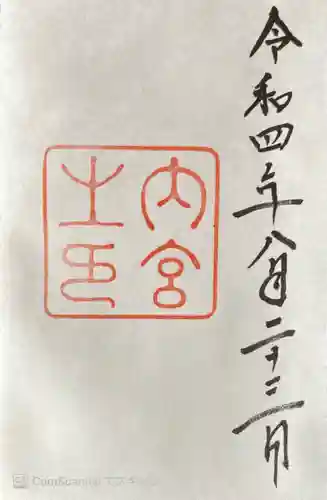 令和四年八月二十三日
内宮
之印
CS CamScanner でスキャン